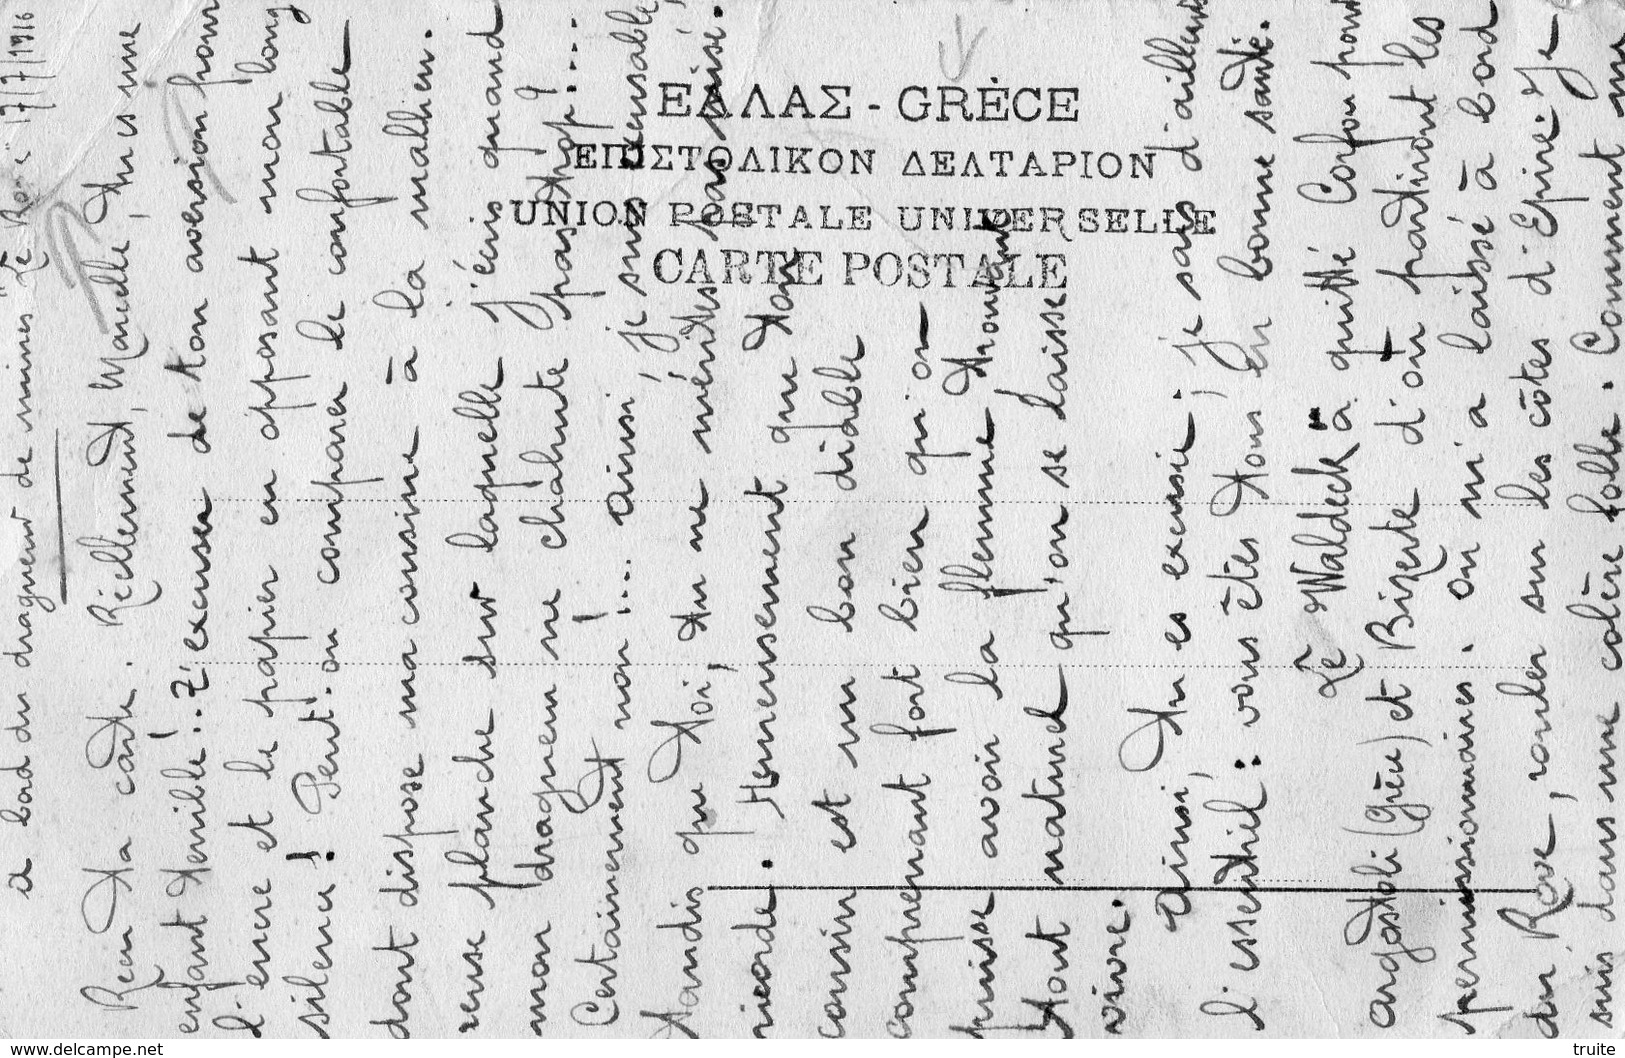 ΕΛΛΑΣ - GRÈCE
ΕΠΙΣΤΟΛΙΚΟΝ ΔΕΛΤΑΡΙΟΝ
UNION POSTALE UNIVERSELLE
CARTE POSTALE
à bord du dragueur de mines "Le Rove" 17/7/1916
Reçu ta carte. Réellement, Marcelle, tu es une
enfant terrible!. T'excuser de ton aversion pour
l'encre et le papier en opposant mon long
silence! Peut-on comparer le confortable
dont dispose ma cousine à la malheu-
reuse planche sur laquelle j'écris quand
mon dragueur ne chahute pas trop?...
Certainement non!... ainsi, je suis excusable,
tandis que toi, tu ne mérites pas misé-
ricorde. Heureusement que ton
cousin est un bon diable
comprenant fort bien qu'on
puisse avoir la flemme trouvant
tout naturel qu'on se laisse
vivre.
Ainsi, tu es excusée. je sais d'ailleurs
l'essentiel: vous êtes tous en bonne santé.
Le Waldeck a quitté Corfou pour
Argostoli (Grèce) et Bizerte d'où partiront les
permissionnaires. On m'a laissé à bord
du Rove, rouler sur les côtes d'Epire. Je
suis dans une colère folle. Comment
www.delcampe.net
truite